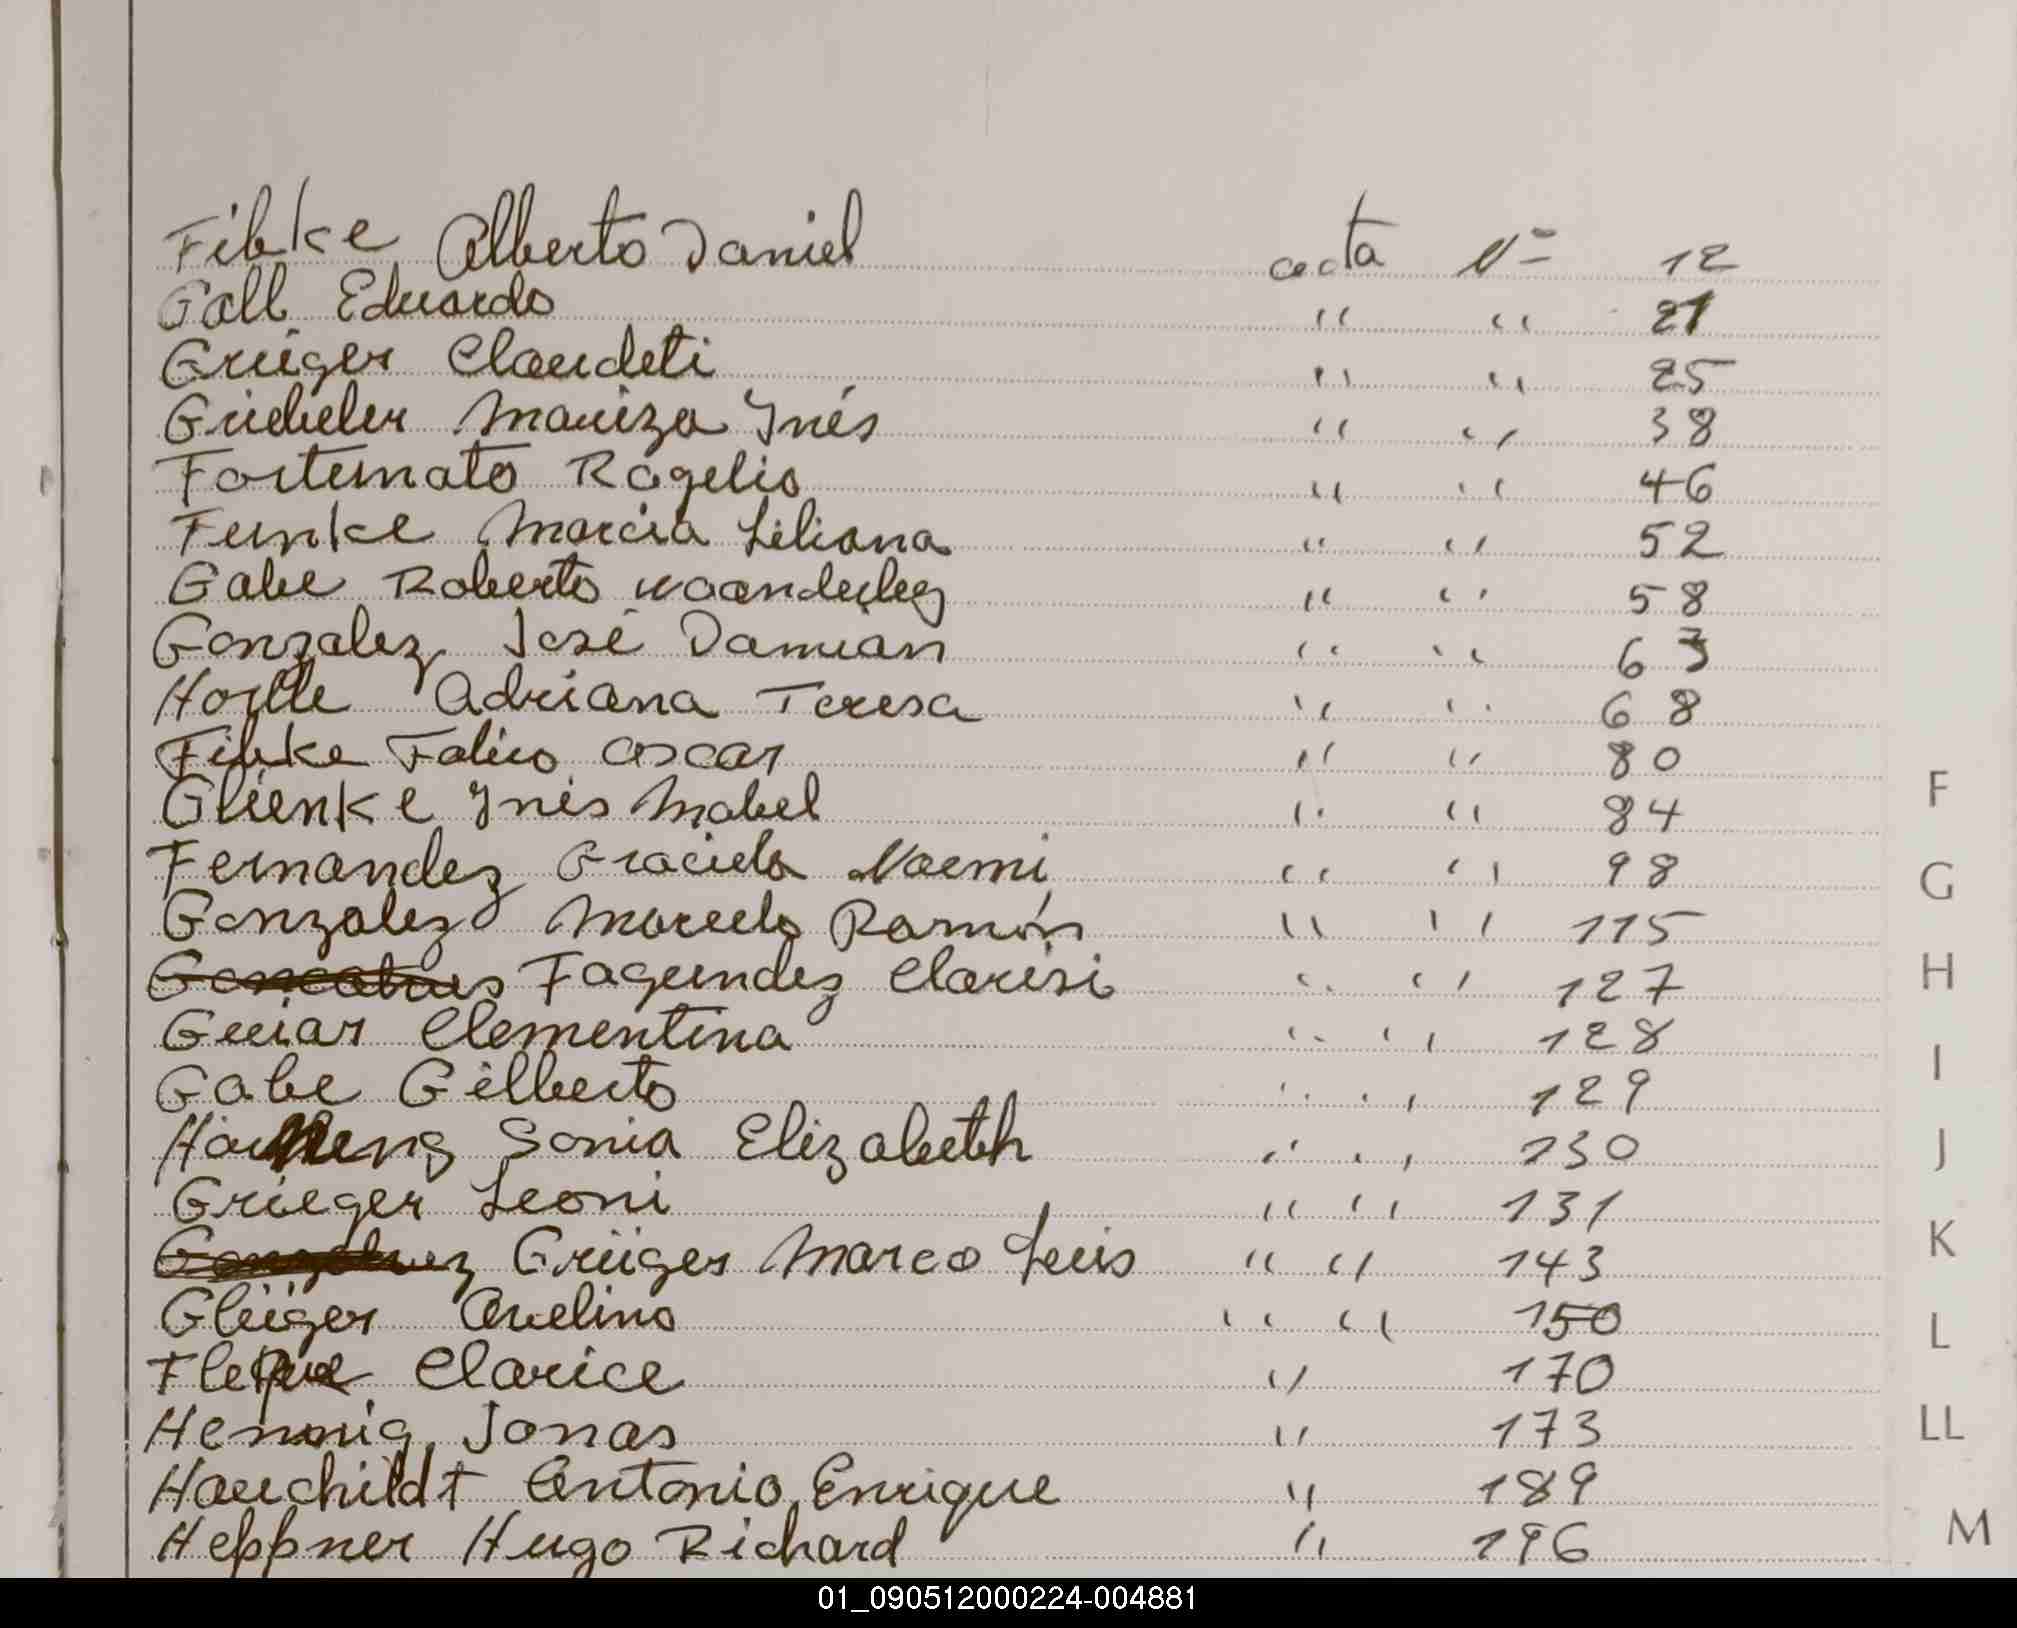 Fibke Alberto Daniel acta Nº 12
Gall Eduardo " " 21
Grüger Claudeti " " 25
Griebeler Mariza Ynés " " 38
Fortunato Rogelio " " 46
Funke Marcia Liliana " " 52
Gabe Roberto " " 58
Gonzalez José Damian " " 63
Adriana Teresa " " 68
Fibke Fabio Oscar " " 80
F
Glienke Ynés Mabel " " 84
Fernandez Graciela Noemi " " 98
G
Gonzalez Marcelo Ramón " " 115
H
Fagundez Clarisi " " 127
Guiar Clementina " " 128
I
Gabe Gilberto " " 129
Sonia Elizabeth " " 130
J
Grieger Leoni " " 131
K
Grüger Marco Luis " " 143
Glüger Avelino " " 150
L
Clarice " 170
Hennig Jonas " 173
LL
Hauchildt Antonio Enrique " 189
M
Heppner Hugo Richard " 196
01_090512000224-004881